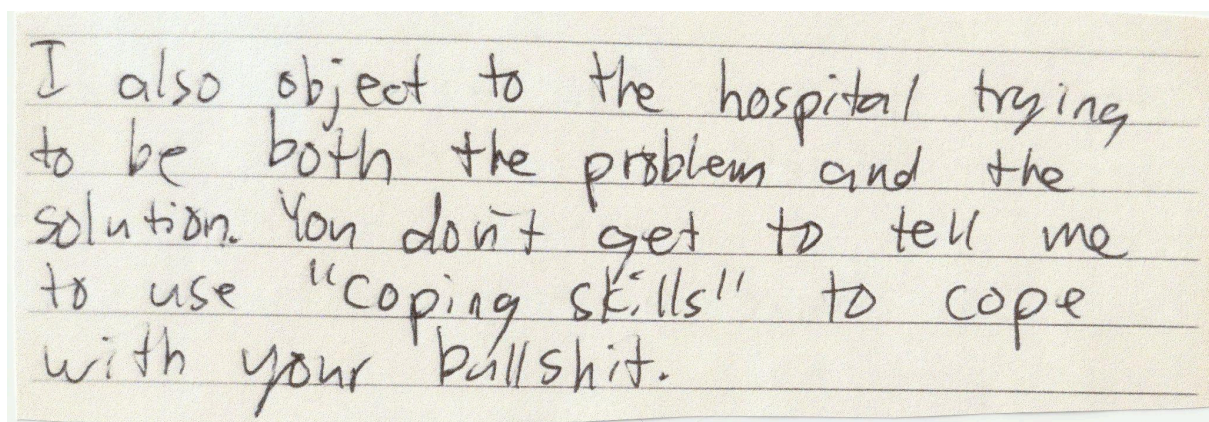 I also object to the hospital trying
to be both the problem and the
solution. You don't get to tell me
to use "coping skills" to cope
with your bullshit.